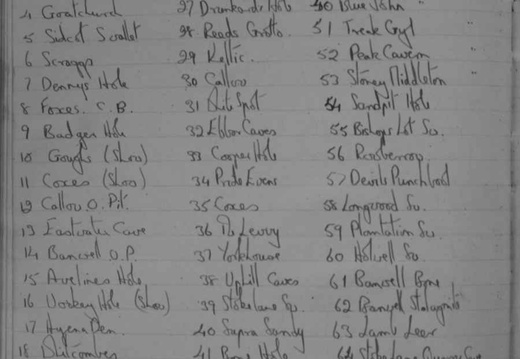 4 Goatchurch
5 Sidcot Swallet
6 Scraggs
7 Dennys Hole
8 Foxes. C.B.
9 Badger Hole
10 Goughs (Show)
11 Coxes (Show)
12 Callow O. Pit.
13 Eastwater Cave
14 Banwell O.P.
15 Avelines Hole
16 Wookey Hole (Show)
17 Hyena Den
18
27 Drunkards Hole
28 Reads Grotto
29 Keltic
30 Callow
31 Spot
32 Ebbor Caves
33 Cooper Hole
34
35 Coxes
36
37 Yorkhouse
38 Uphill Caves
39 Stoke Lane Sw.
40 Supra Sandy
41 Bone Hole
50 Blue John "
51 Treak Gyl "
52 Peak Cavern "
53 Stoney Middleton "
54 Sandpit Hole
55 Bishops Lot Sw.
56
57 Devils Punchbowl
58 Longwood Sw.
59 Plantation Sw.
60 Holwell Sw.
61 Banwell Bone
62 Banwell Stalagmite
63 Lamb Leer
64